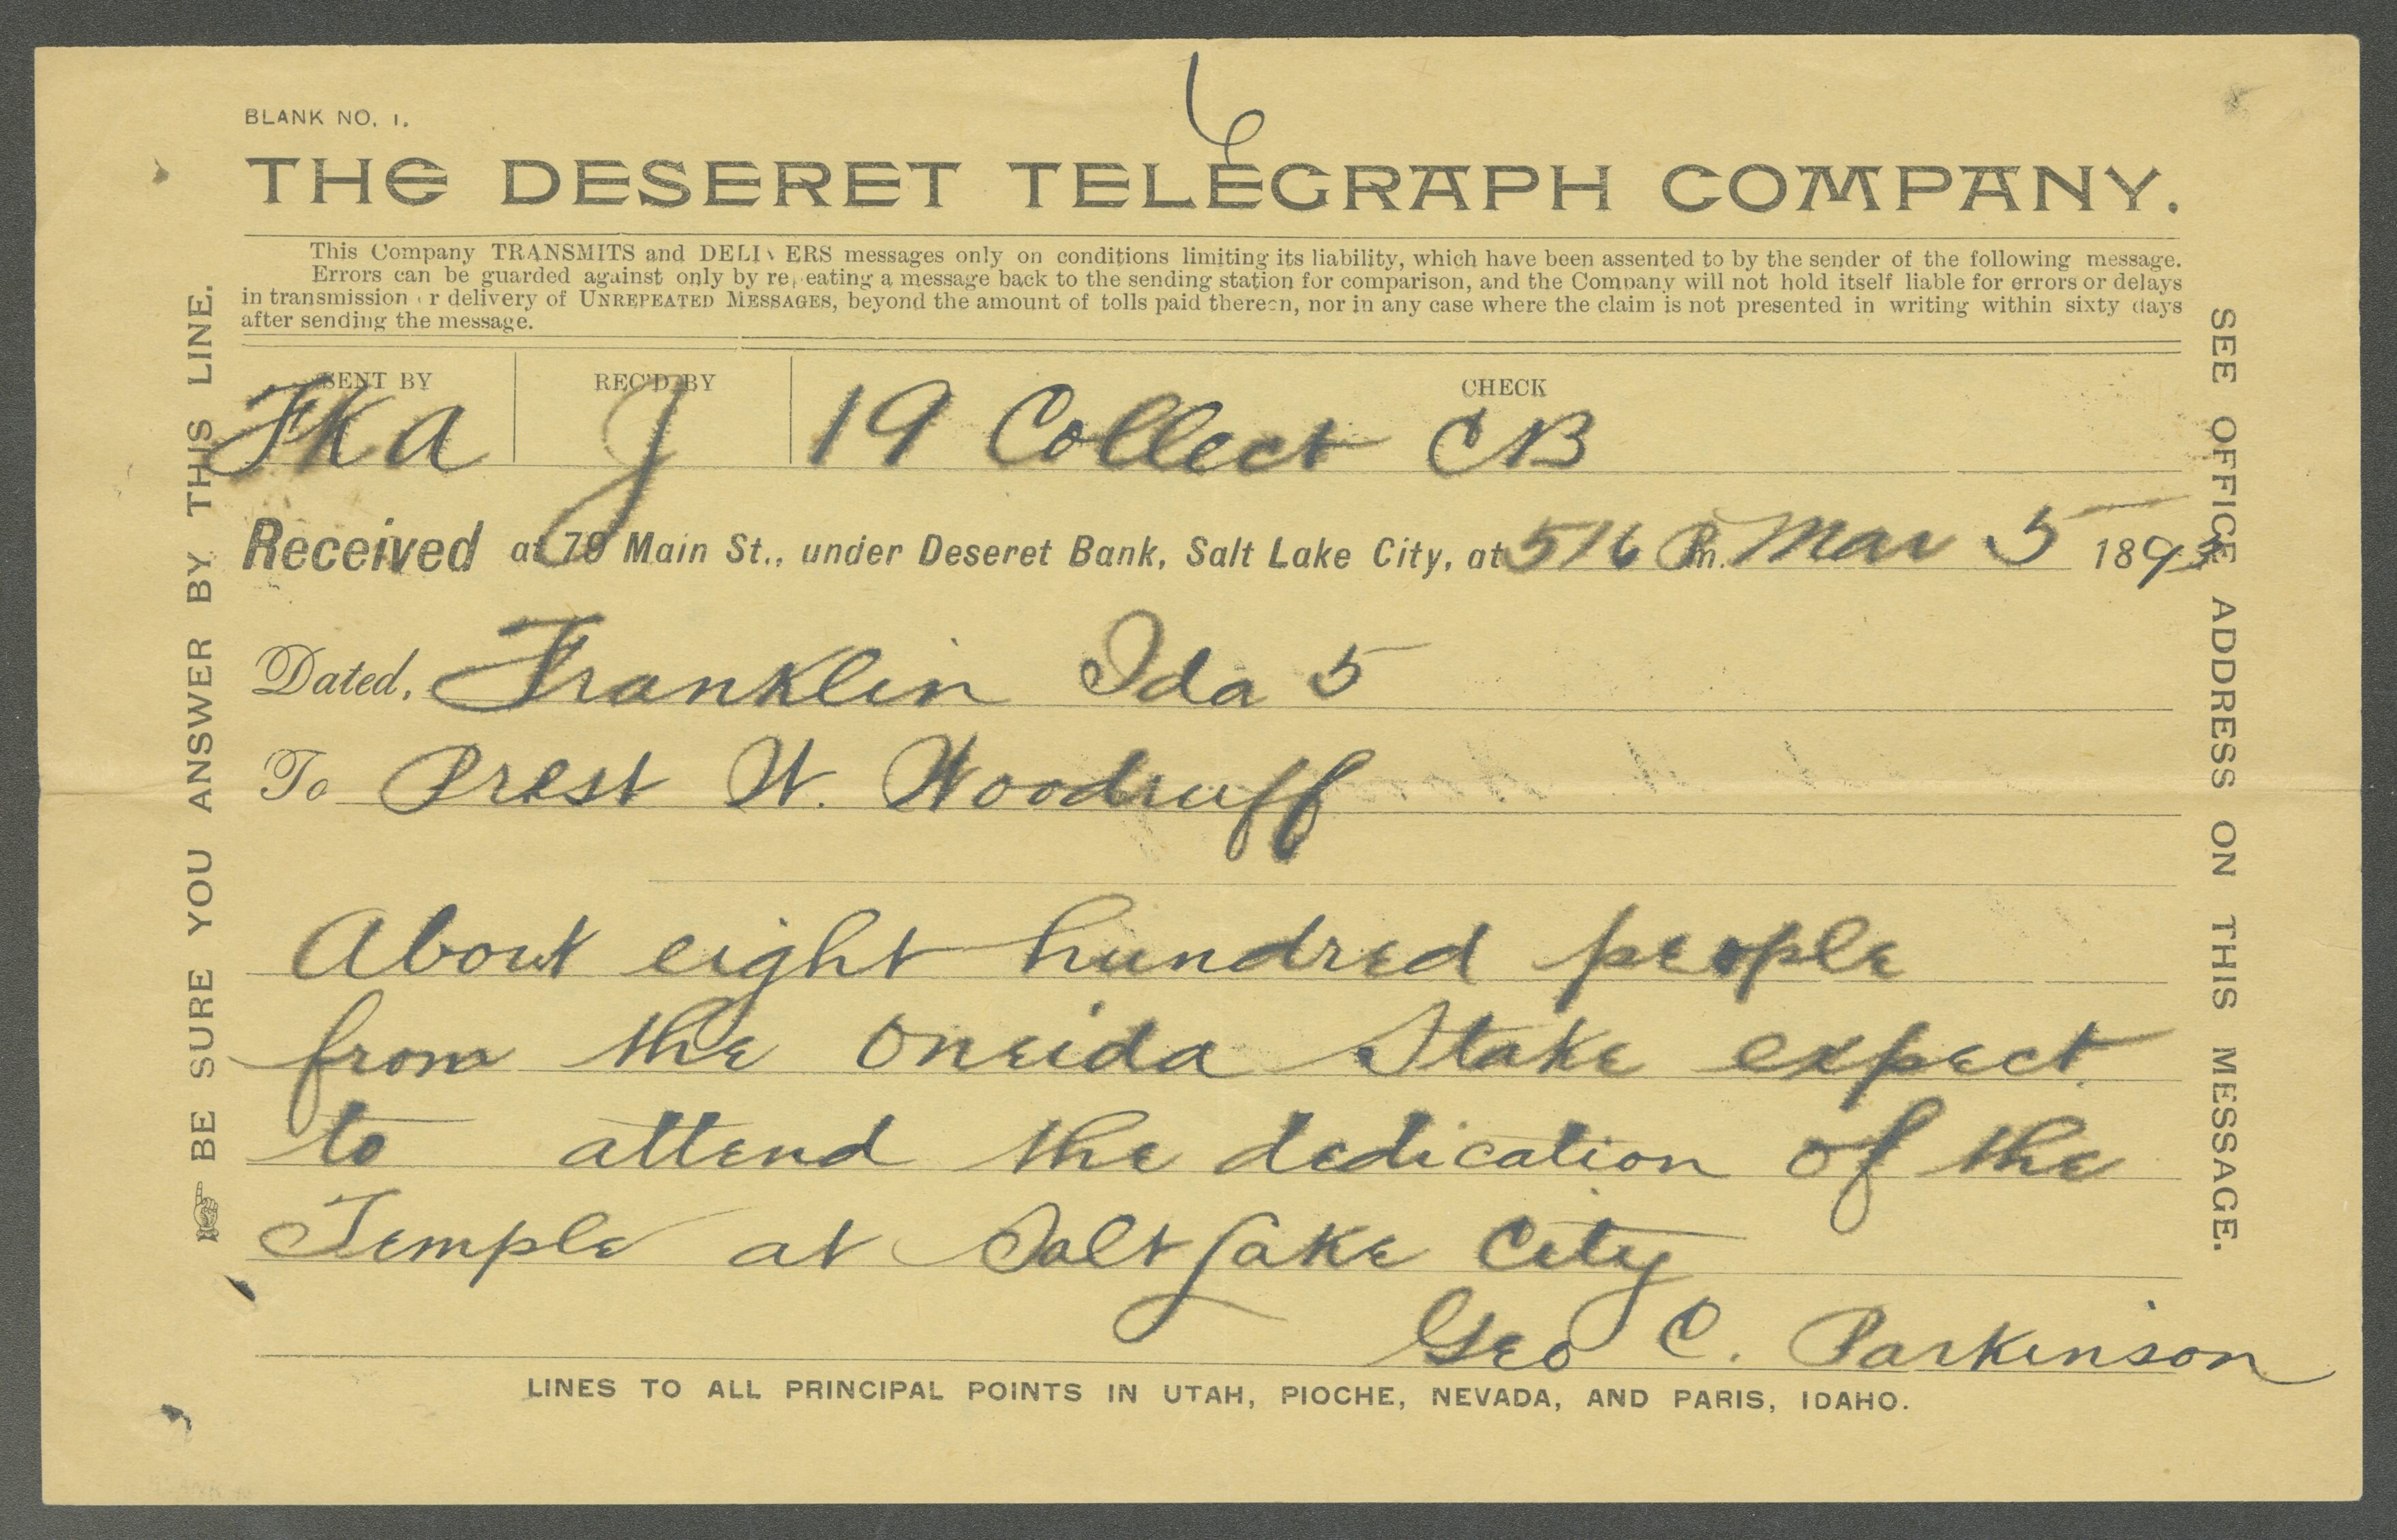 6
BLANK NO. 1.
THE DESERET TELEGRAPH COMPANY.
This Company TRANSMITS and DELIVERS messages only on conditions limiting its liability, which have been assented to by the sender of the following message.
Errors can be guarded against only by repeating a message back to the sending station for comparison, and the Company will not hold itself liable for errors or delays
in transmission or delivery of UNREPEATED MESSAGES, beyond the amount of tolls paid thereon, nor in any case where the claim is not presented in writing within sixty days
after sending the message.
SENT BY REC'D BY CHECK
FKa J 19 Collect CB
Received at 79 Main St., under Deseret Bank, Salt Lake City, at 516 P m. Mar 5 1893
Dated, Franklin Ida 5
To Prest W. Woodruff
About eight hundred people
from the Oneida Stake expect
to attend the dedication of the
Temple at Salt Lake City
Geo C. Parkinson
LINES TO ALL PRINCIPAL POINTS IN UTAH, PIOCHE, NEVADA, AND PARIS, IDAHO.
☞ BE SURE YOU ANSWER BY THIS LINE.
SEE OFFICE ADDRESS ON THIS MESSAGE.